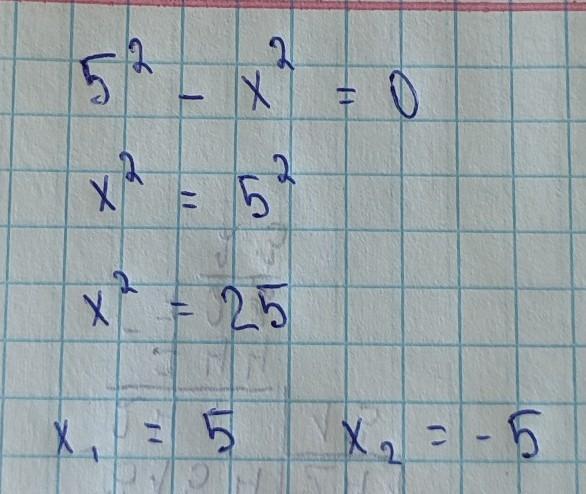 5² - x² = 0
x² = 5²
x² = 25
x₁ = 5 x₂ = -5